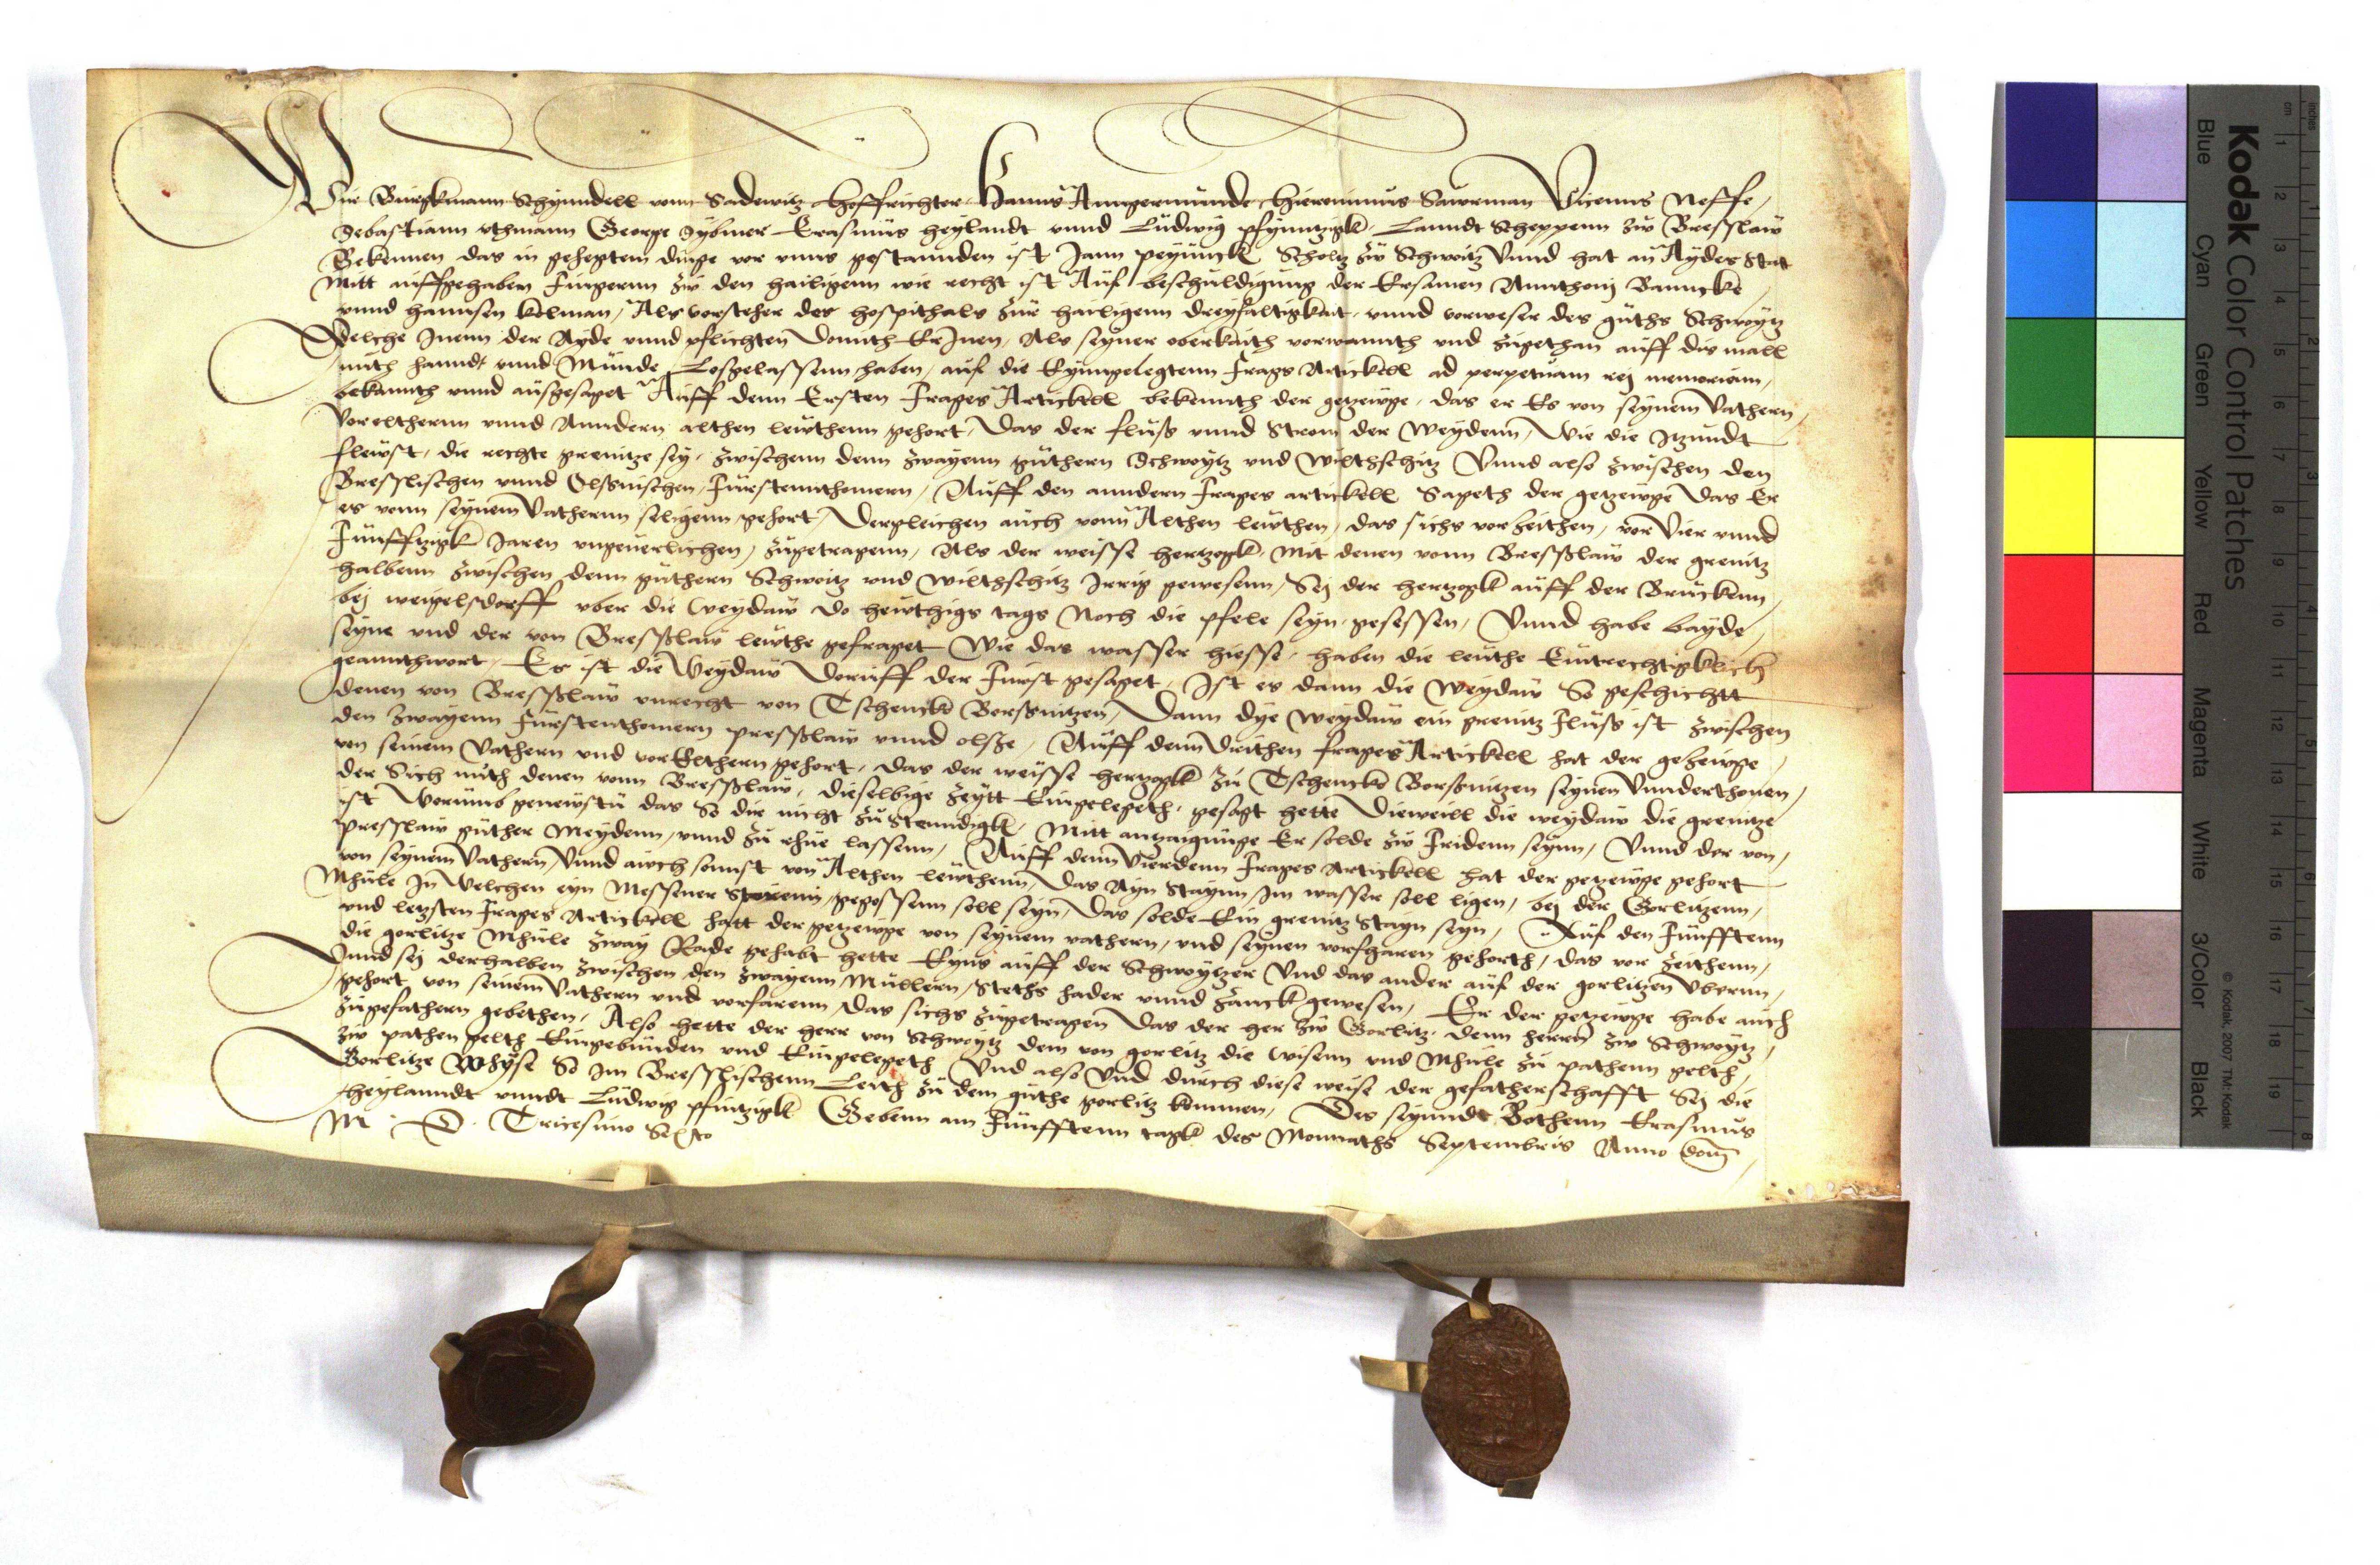 Wir Burgkmann Schyndell vonn Sadewitz Hoffrichter Hanns Anngermunde Hieronimus Sawrman Vicennz Neffe,
Sebastiann Uthmann George Sybiner Erasmus Heylandt unnd Ludwig Pfyntzigk Lanndt Scheppenn zw Bresslaw
Bekennen das in gehegtem dinge vor unns gestannden ist Jann peyunck Scholtz zw Schwoitz Unnd hat an Aydes stat
Mitt auffgehaben Fingernn zw den hailigenn wie recht ist Auf beschuldigung der Ersamen Annthonij Banncke
unnd hannsen kolman, Als vorsteher des hospithals zur hailigenn dreyfaltigkait unnd vorweser des guths Schwoytz
Welche Inenn der Ayde unnd pflichten Domith Er Inen, Als seyner oberkaith vorwannth und zugethan auff dis mall
mith hanndt unnd Munde Losgelassenn haben, auf die Eyngelegtenn frags Artickell ad perpetuam rej memoriam,
bekannth unnd ausgesaget Auff denn Ersten Frages Artickell bekennth der getzewge, das er Es von seynem Vathern,
Voreltherenn unnd Anndern althen lewthenn gehort, Das der fluss unnd Strom der Weydenn, Wie die Itzundt
flewst, die rechte grenitze sey, zwischenn denn zwayenn guthern Schwoytz und Wilthschitz Unnd also zwischen den
Bresslischen unnd Olssnischen Furstennthomern, Auff den anndern Frages artickell Sageth der getzewge Das Er
es vonn seynem Vathernn seligenn gehort, Dergleichen auch vonn Althen lewthen, das sichs vor zeithen, vor Vier unnd
Funfftzigk Jaren ungeverlichen, zugetragenn, Als der weisse hertzogk Mit denen vonn Bresslaw der grenitz
halbenn zwischen denn guthern Schwoitz und Wilthschitz Irrig gewesenn, Sej der hertzogk auff der Bruckenn,
bej weigelsdorff uber die Weydaw do hewthigs tags Noch die pfele seyn gesessen, Unnd habe bayde,
seyne und der von Bresslaw lewthe gefraget Wie das wasser hiesse, haben die leuthe Eintrechtigklich
geannthwort, Es ist die Weydaw Doruff der Furst gesaget, Ist es dann die Weydaw So geschichtt
denen von Bresslaw unrecht von Tschencko Borssnitzen, Dann dye Weydaw ein grenitz fluss ist zwischen
den zwayenn Furstenthomern presslaw unnd olsse, Auff denn Drithen frages Artickell hat der gezewge,
von seinem Vathern und vorElthern gehort, das der weisse hertzogk zu Tschencko Borssnitzen seynen Unnderthonen,
der Sich mith denen vonn Bresslaw, dieselbige zeytt Eingelegeth, gesagt hette Dieweill die weydaw die grenitze
ist Worumb geneustu das So dir nicht zustenndigk, Mitt antzaigunge Er solde zw Fridenn seynn, Unnd der von,
presslaw guther Meydenn, unnd zu rhue lassenn, Auff denn Vierdenn Frages Artickell hat der getzewge gehort
von seynem Vathern, Unnd auch sonnst von Althen lewthenn, Das Ayn Staynn im wasser soll ligen, bej der Gorlitzenn,
Mhule In Welchen eyn Messener gegossenn soll seyn, Das solde Ein grenitz Stayn seyn, Auf den Funfftenn
und letzsten Frages Artickell hatt der getzewge von seynem vathern, und seynen vorfharen gehorth, das vor zeithenn,
die gorlitze Mhule zway Rade gehabt hette Eyns auff der Schwoytzer Und das ander auf der gorlitzen Ubernn,
Unnd sej derhalben zwischen den zwayenn Mullern, Steths hader unnd zanck gewesen, Er der getzewge habe auch
gehort von seinem Vathern und vorfarenn das sichs zugetragen Das der her zw Gorlitz, denn herrn zw Schwoytz,
zugefathern gebethen, Also hette der herr von Schwoytz dem von gorlitz die Wisenn und Mhule zu pathenn gelth,
zw pathen gelth Eingebunden und Eingelegeth Und also Und durch diese weise der gefatherschafft Sej die
Gorlitze Whyse So im Bresslischenn Leith zu dem guthe gorlitz kommen, Des seynndt Bothenn Erasmus
heylanndt unndt Ludwig pfintzigk Gebenn am Funfftenn tagk des Monnaths Septembris Anno domj
M D Tricesimo Sexto
Kodak Color Control Patches
Blue Cyan Green Yellow Red Magenta White 3/Color Black
© Kodak, 2007 TM: Kodak
inches 1 2 3 4 5 6 7 8
cm 1 2 3 4 5 6 7 8 9 10 11 12 13 14 15 16 17 18 19